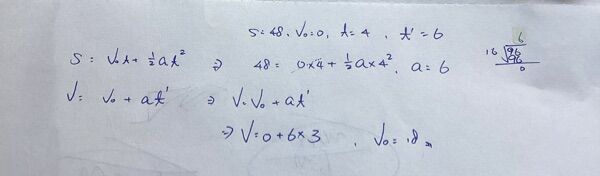 S=48, V₀=0, t=4, t'=6
S= V₀t+½at² ⇒ 48= 0×4+½a×4², a=6
6
16 √96
96
0
V= V₀+at' ⇒ V=V₀+at'
⇒ V=0+6×3, V₀=18